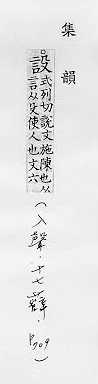 集韻
設式列切說文施陳也从
言从殳使人也文六
(入聲·十七薛·P709)